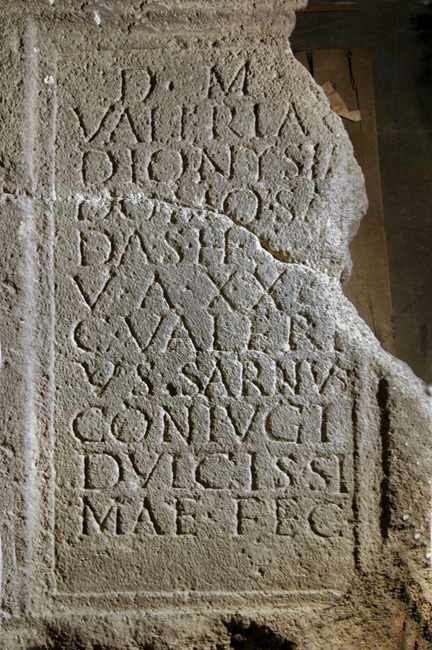 D · M
VALERIA
DIONYSI
DOMO · S
DAS · H
V · A · XX
C · VALERI
VS · SARNVS
CONIVGI
DVLCISSI
MAE · FEC